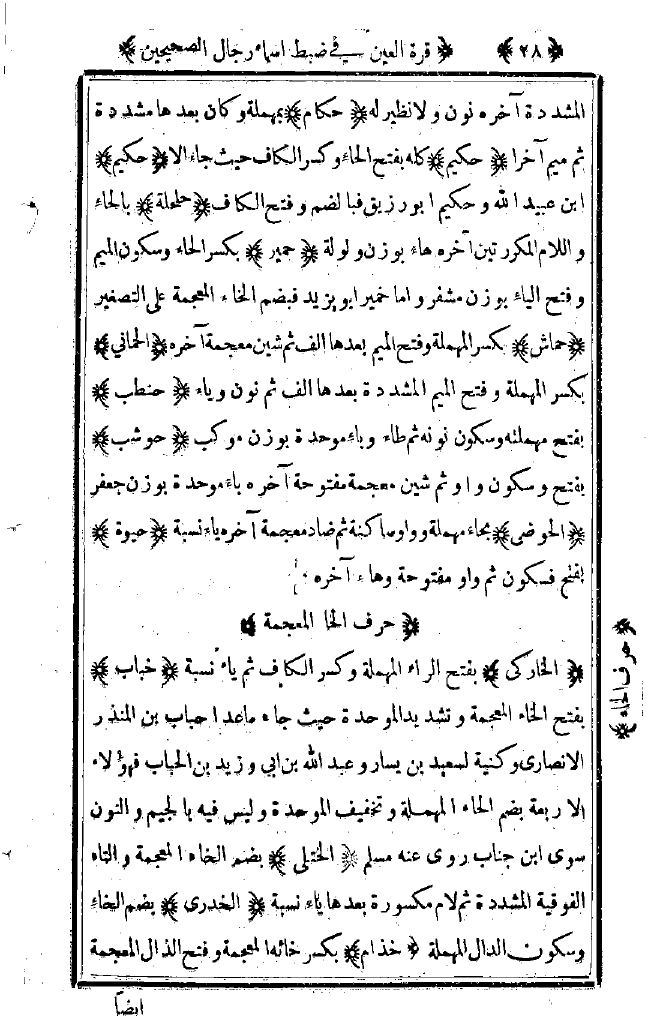 ﴿ ٢٨ ﴾ ﴿ قرة العين في ضبط اسماء رجال الصحيحين ﴾
المشددة آخره نون ولا نظير له ﴿ حكام ﴾ بمهملة وكان بعدها مشددة
ثم ميم آخرا ﴿ حكيم ﴾ كله بفتح الحاء وكسر الكاف حيث جاء الا ﴿ حكيم ﴾
ابن عبيد الله وحكيم ابو رزيق فبالضم وفتح الكاف ﴿ حلحلة ﴾ بالحاء
واللام المكررتين آخره هاء بوزن ولولة ﴿ حمير ﴾ بكسر الحاء وسكون الميم
وفتح الياء بوزن مشفر واما خمير ابو يزيد فبضم الخاء المعجمة على التصغير
﴿ حماش ﴾ بكسر المهملة وفتح الميم بعدها الف ثم شين معجمة آخره ﴿ الحماني ﴾
بكسر المهملة وفتح الميم المشددة بعدها الف ثم نون وياء ﴿ حنطب ﴾
بفتح مهملته وسكون نونه ثم طاء وباء موحدة بوزن موكب ﴿ حوشب ﴾
بفتح وسكون واو ثم شين معجمة مفتوحة آخره باء موحدة بوزن جعفر
﴿ الحوضى ﴾ بحاء مهملة وواو ساكنة ثم ضاد معجمة آخره ياء نسبة ﴿ حيوة ﴾
بفتح فسكون ثم واو مفتوحة وهاء آخره
﴿ حرف الخا المعجمة ﴾
﴿ حرف الخاء ﴾
﴿ الخاركى ﴾ بفتح الراء المهملة وكسر الكاف ثم ياء نسبة ﴿ خباب ﴾
بفتح الخاء المعجمة وتشديد الموحدة حيث جاء ماعدا حباب بن المنذر
الانصارى وكنية لسعيد بن يسار وعبد الله بن ابي وزيد بن الحباب فهؤلاء
الاربعة بضم الحاء المهملة وتخفيف الموحدة وليس فيه بالجيم والنون
سوى ابن جناب روى عنه مسلم ﴿ الختلى ﴾ بضم الخاء المعجمة والتاء
الفوقية المشددة ثم لام مكسورة بعدها ياء نسبة ﴿ الخدرى ﴾ بضم الخاء
وسكون الدال المهملة ﴿ خذام ﴾ بكسر خائه المعجمة وفتح الذال المعجمة
ايضاً